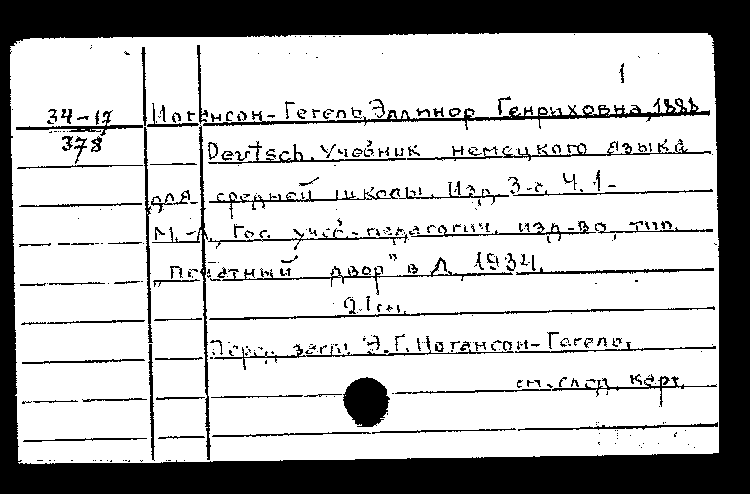 1
34-17 Иогансон-Гегель, Эллинор Генриховна, 1888
378 Deutsch. Учебник немецкого языка
для средней школы. Изд. 3-е. Ч. 1-
М.-Л., Гос. учеб.-педагогич. изд-во, тип.
„Печатный двор" в Л., 1934.
21 см.
Перед загл: Э.Г. Иогансон-Гегель.
см. след. карт.